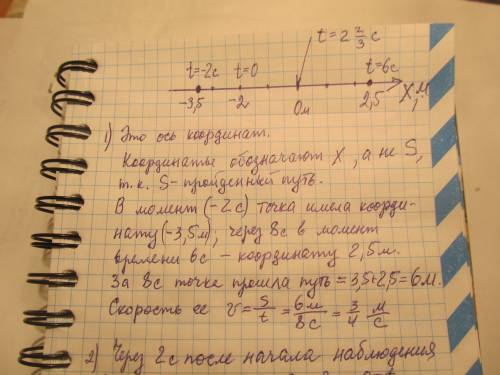 t = 2 2/3 c
t=-2c t=0 t=6c
-3,5 -2 0м 2,5 X, м
1) Это ось координат.
Координаты обозначают X, а не S,
т.к. S - пройденный путь.
В момент (-2с) точка имела коорди-
нату (-3,5м), через 8с в момент
времени 6с - координату 2,5м.
За 8с точка прошла путь = 3,5+2,5=6м.
Скорость ее v = s/t = 6м/8с = 3/4 м/с
2) Через 2с после начала наблюдения